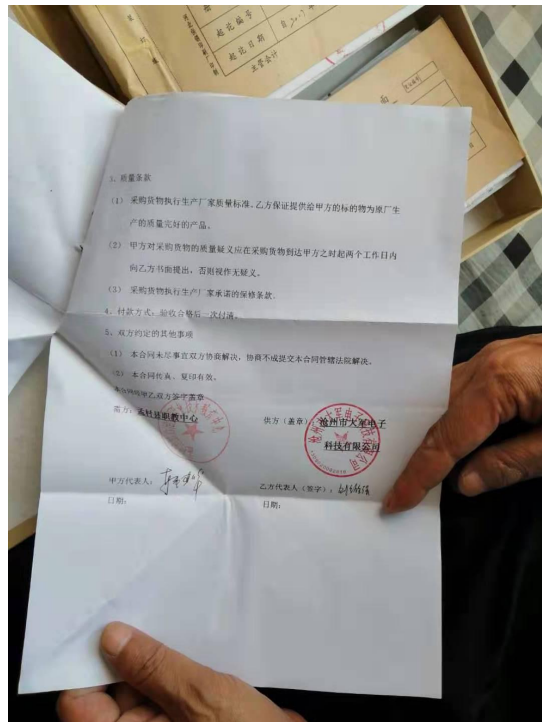 起讫编号
自
起讫日期
主管会计
面
3、质量条款
(1) 采购货物执行生产厂家质量标准。乙方保证提供给甲方的标的物为原厂生
产的质量完好的产品。
(2) 甲方对采购货物的质量疑义应在采购货物到达甲方之时起两个工作日内
向乙方书面提出,否则视作无疑义。
(3) 采购货物执行生产厂家承诺的保修条款.
4、付款方式:验收合格后一次付清。
5、双方约定的其他事项
(1) 本合同未尽事宜双方协商解决,协商不成提交本合同管辖法院解决。
(2) 本合同传真、复印有效。
甲乙双方签字盖章
需方:孟村县职教中心
供方(盖章):沧州市大军电子
科技有限公司
甲方代表人:
乙方代表人(签字):
日期:
日期: